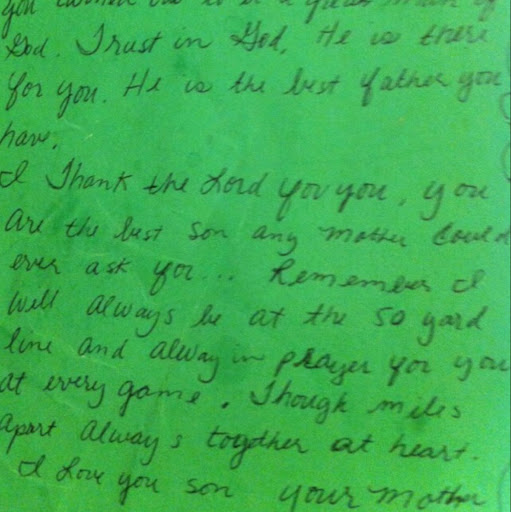 you turned out to be a great man of
God. Trust in God. He is there
for you. He is the best father you
have.
I Thank the Lord for you, you
are the best son any mother could
ever ask for... Remember I
will always be at the 50 yard
line and alway in prayer for you
at every game. Though miles
apart always together at heart.
I Love you son your mother